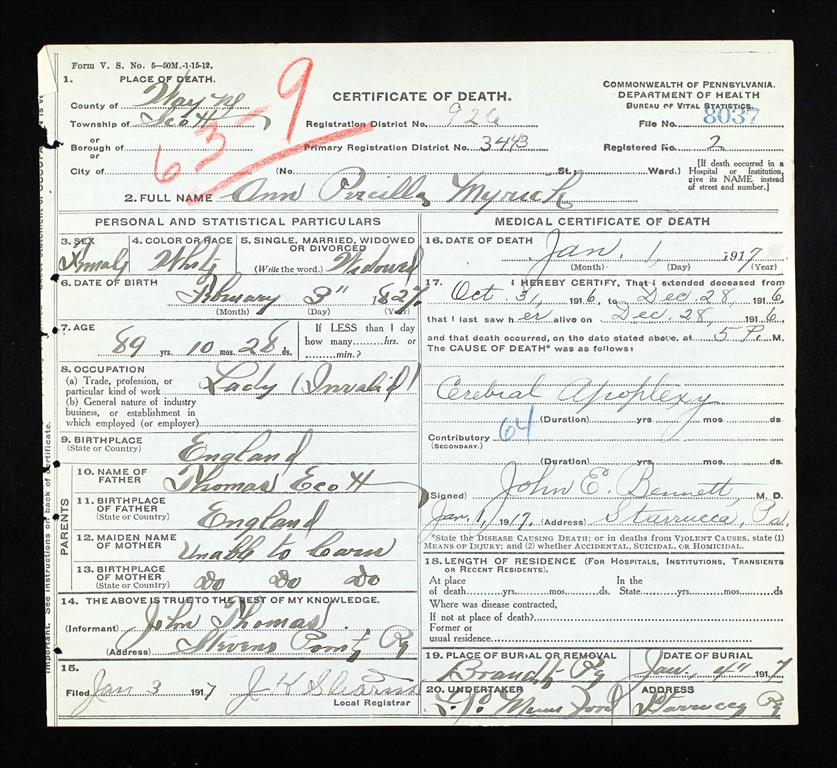 Form V. S. No. 5—50M.-1-15-12.
1. PLACE OF DEATH.
County of Wayne
Township of Scott
or
Borough of
or
City of
(No. St., Ward.)
639
CERTIFICATE OF DEATH.
Registration District No. 926
Primary Registration District No. 3443
COMMONWEALTH OF PENNSYLVANIA.
DEPARTMENT OF HEALTH
BUREAU OF VITAL STATISTICS.
File No. 8037
Registered No. 2
[If death occurred in a Hospital or Institution, give its NAME instead of street and number.]
2. FULL NAME Ann Percilla Myrick
PERSONAL AND STATISTICAL PARTICULARS
3. SEX Female
4. COLOR OR RACE White
5. SINGLE, MARRIED, WIDOWED OR DIVORCED
(Write the word.) Widowed
6. DATE OF BIRTH
February 3" 1827
(Month) (Day) (Year)
7. AGE
89 yrs. 10 mos. 28 ds.
If LESS than 1 day
how many hrs. or
min.?
8. OCCUPATION
(a) Trade, profession, or
particular kind of work Lady (Invalid)
(b) General nature of industry
business, or establishment in
which employed (or employer)
9. BIRTHPLACE
(State or Country) England
PARENTS
10. NAME OF
FATHER Thomas Ecott
11. BIRTHPLACE
OF FATHER
(State or Country) England
12. MAIDEN NAME
OF MOTHER Unable to learn
13. BIRTHPLACE
OF MOTHER
(State or Country) Do Do Do
14. THE ABOVE IS TRUE TO THE BEST OF MY KNOWLEDGE.
(Informant) John Thomas
(Address) Stevens Point Pa
15.
Filed Jan 3 1917
Local Registrar
MEDICAL CERTIFICATE OF DEATH
16. DATE OF DEATH
Jan. 1, 1917
(Month) (Day) (Year)
17. I HEREBY CERTIFY, That I attended deceased from
Oct. 31, 1916, to Dec. 28, 1916
that I last saw her alive on Dec. 28, 1916
and that death occurred, on the date stated above, at 5 P. M.
The CAUSE OF DEATH* was as follows:
Cerebral Apoplexy
(Duration) yrs mos ds
64
Contributory
(SECONDARY.)
(Duration) yrs. mos. ds
Signed John E. Bennett M. D.
Jan. 1, 1917. (Address) Starrucca, Pa.
*State the DISEASE CAUSING DEATH; or in deaths from VIOLENT CAUSES, state (1)
MEANS OF INJURY; and (2) whether ACCIDENTAL, SUICIDAL, OR HOMICIDAL.
18. LENGTH OF RESIDENCE (FOR HOSPITALS, INSTITUTIONS, TRANSIENTS
OR RECENT RESIDENTS).
At place In the
of death yrs. mos. ds. State yrs. mos. ds
Where was disease contracted,
If not at place of death?
Former or
usual residence
19. PLACE OF BURIAL OR REMOVAL
Brandt Pa
DATE OF BURIAL
Jan. 4" 1917
20. UNDERTAKER
ADDRESS
Starrucca Pa
Important. See instructions on back of certificate.